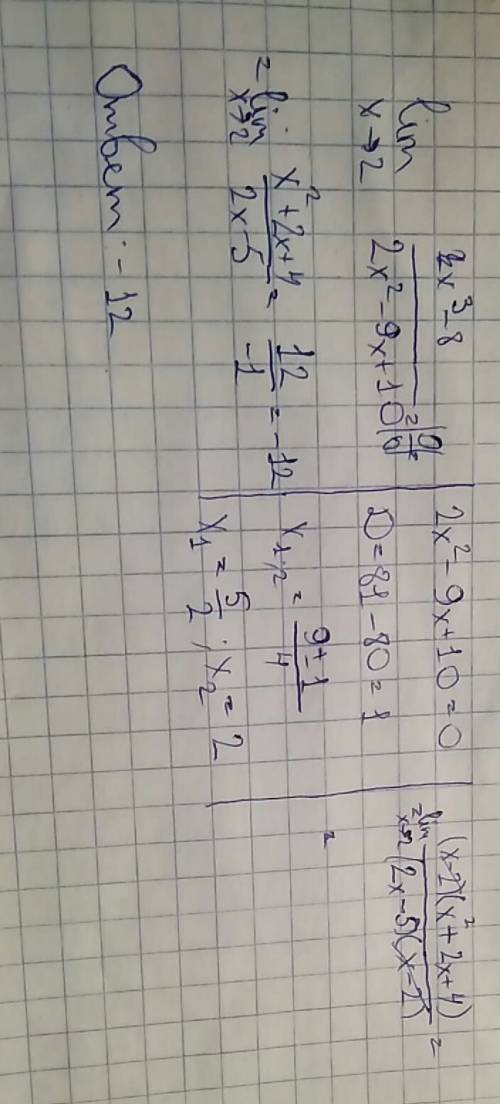 lim x→2 (x³-8)/(2x²-9x+10) = |0/0| =
2x²-9x+10=0
D=81-80=1
x₁,₂ = (9±1)/4
x₁ = 5/2; x₂ = 2
= lim x→2 ((x-2)(x²+2x+4))/((2x-5)(x-2)) =
=
= lim x→2 (x²+2x+4)/(2x-5) = 12/-1 = -12
Ответ: -12